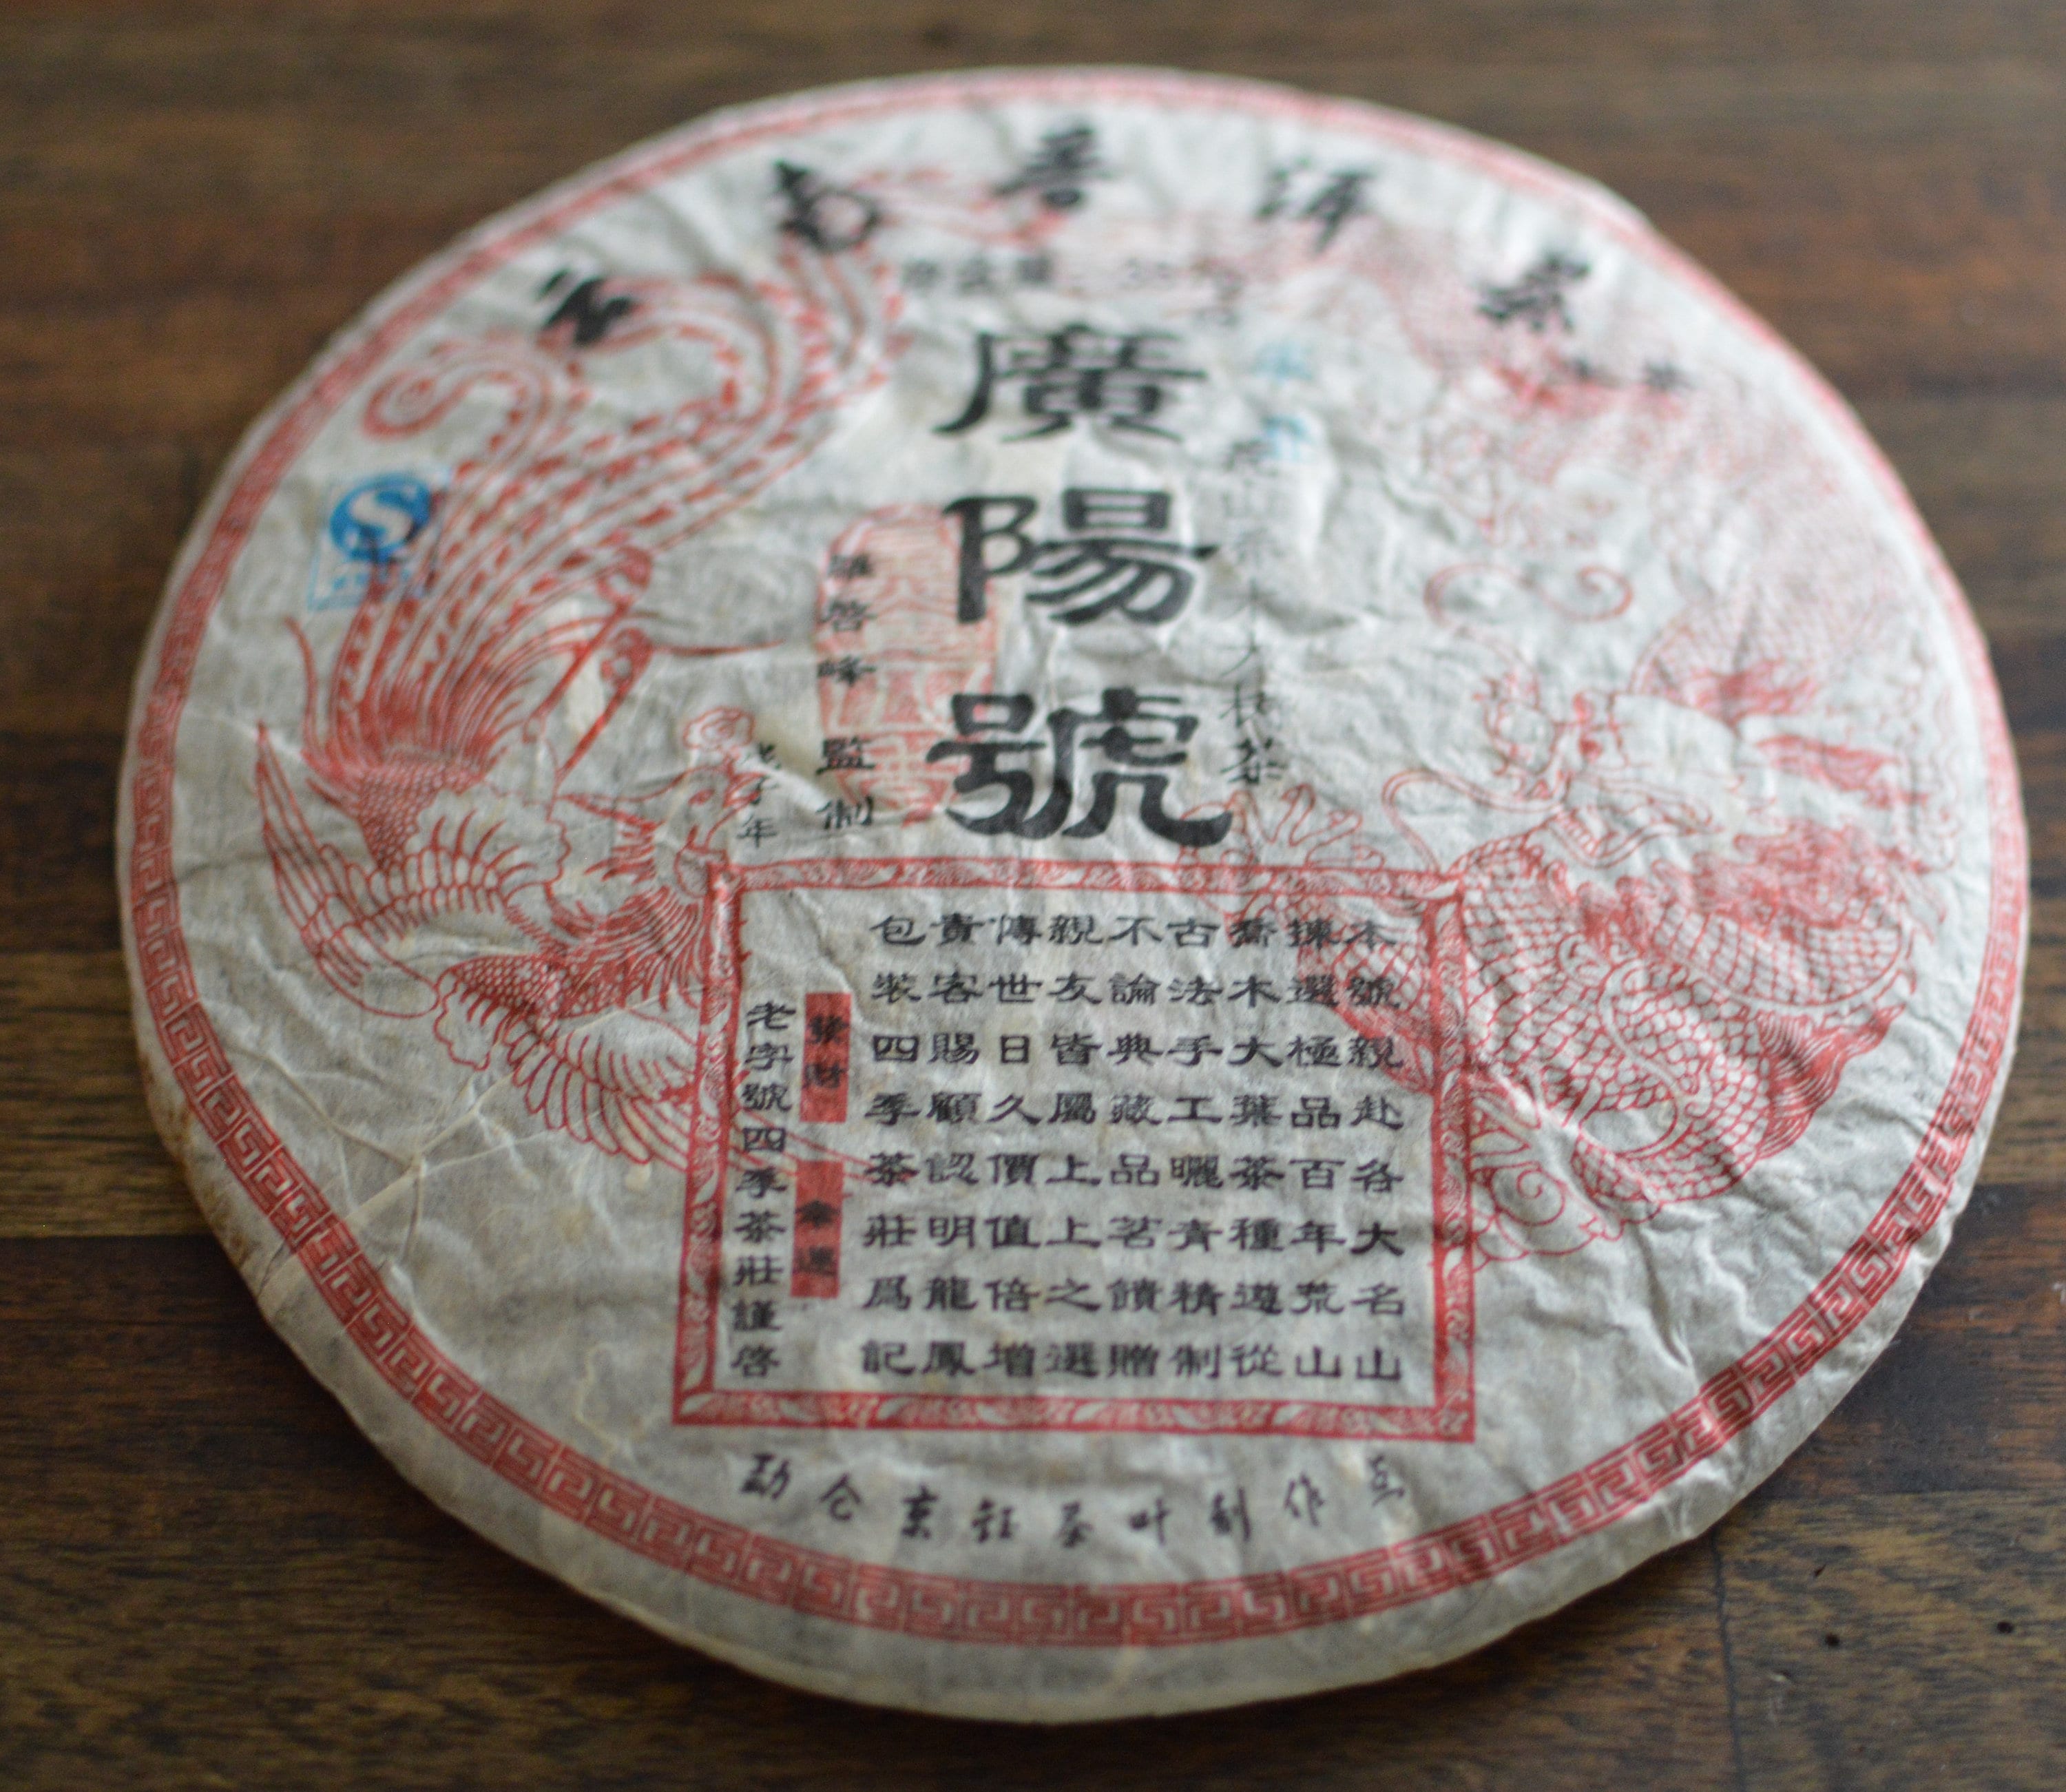 云南普洱茶
廣陽號
大樹茶
啓峰監制
戊子年
本號親赴各大名山
揀選極品百年荒山
喬木大葉茶種遵從
古法手工曬青精制
不論典藏品茗饋贈
親友皆屬上上之選
傳世日久價值倍增
貴客賜顧認明龍鳳
包裝四季茶莊爲記
老字號四季茶莊謹啓
勐仑京钰茶叶制作